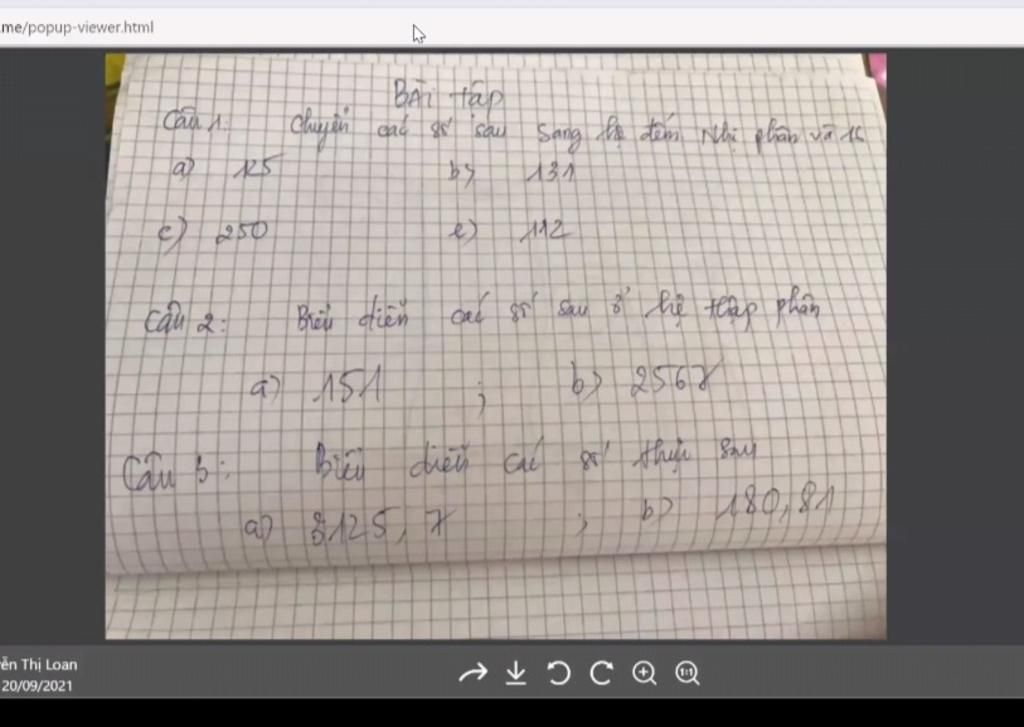 .me/popup-viewer.html
BÀI tập
Câu 1: Chuyển các số sau sang hệ đếm Nhị phân và 16
a) 125 b) 131
c) 250 e) 112
Câu 2: Biểu diễn các số sau ở hệ thập phân
a) 151 ; b) 2567
Câu 3: Biểu diễn các số thực sau
a) 3125,7 ; b) 180,81
ễn Thị Loan
20/09/2021
1:1